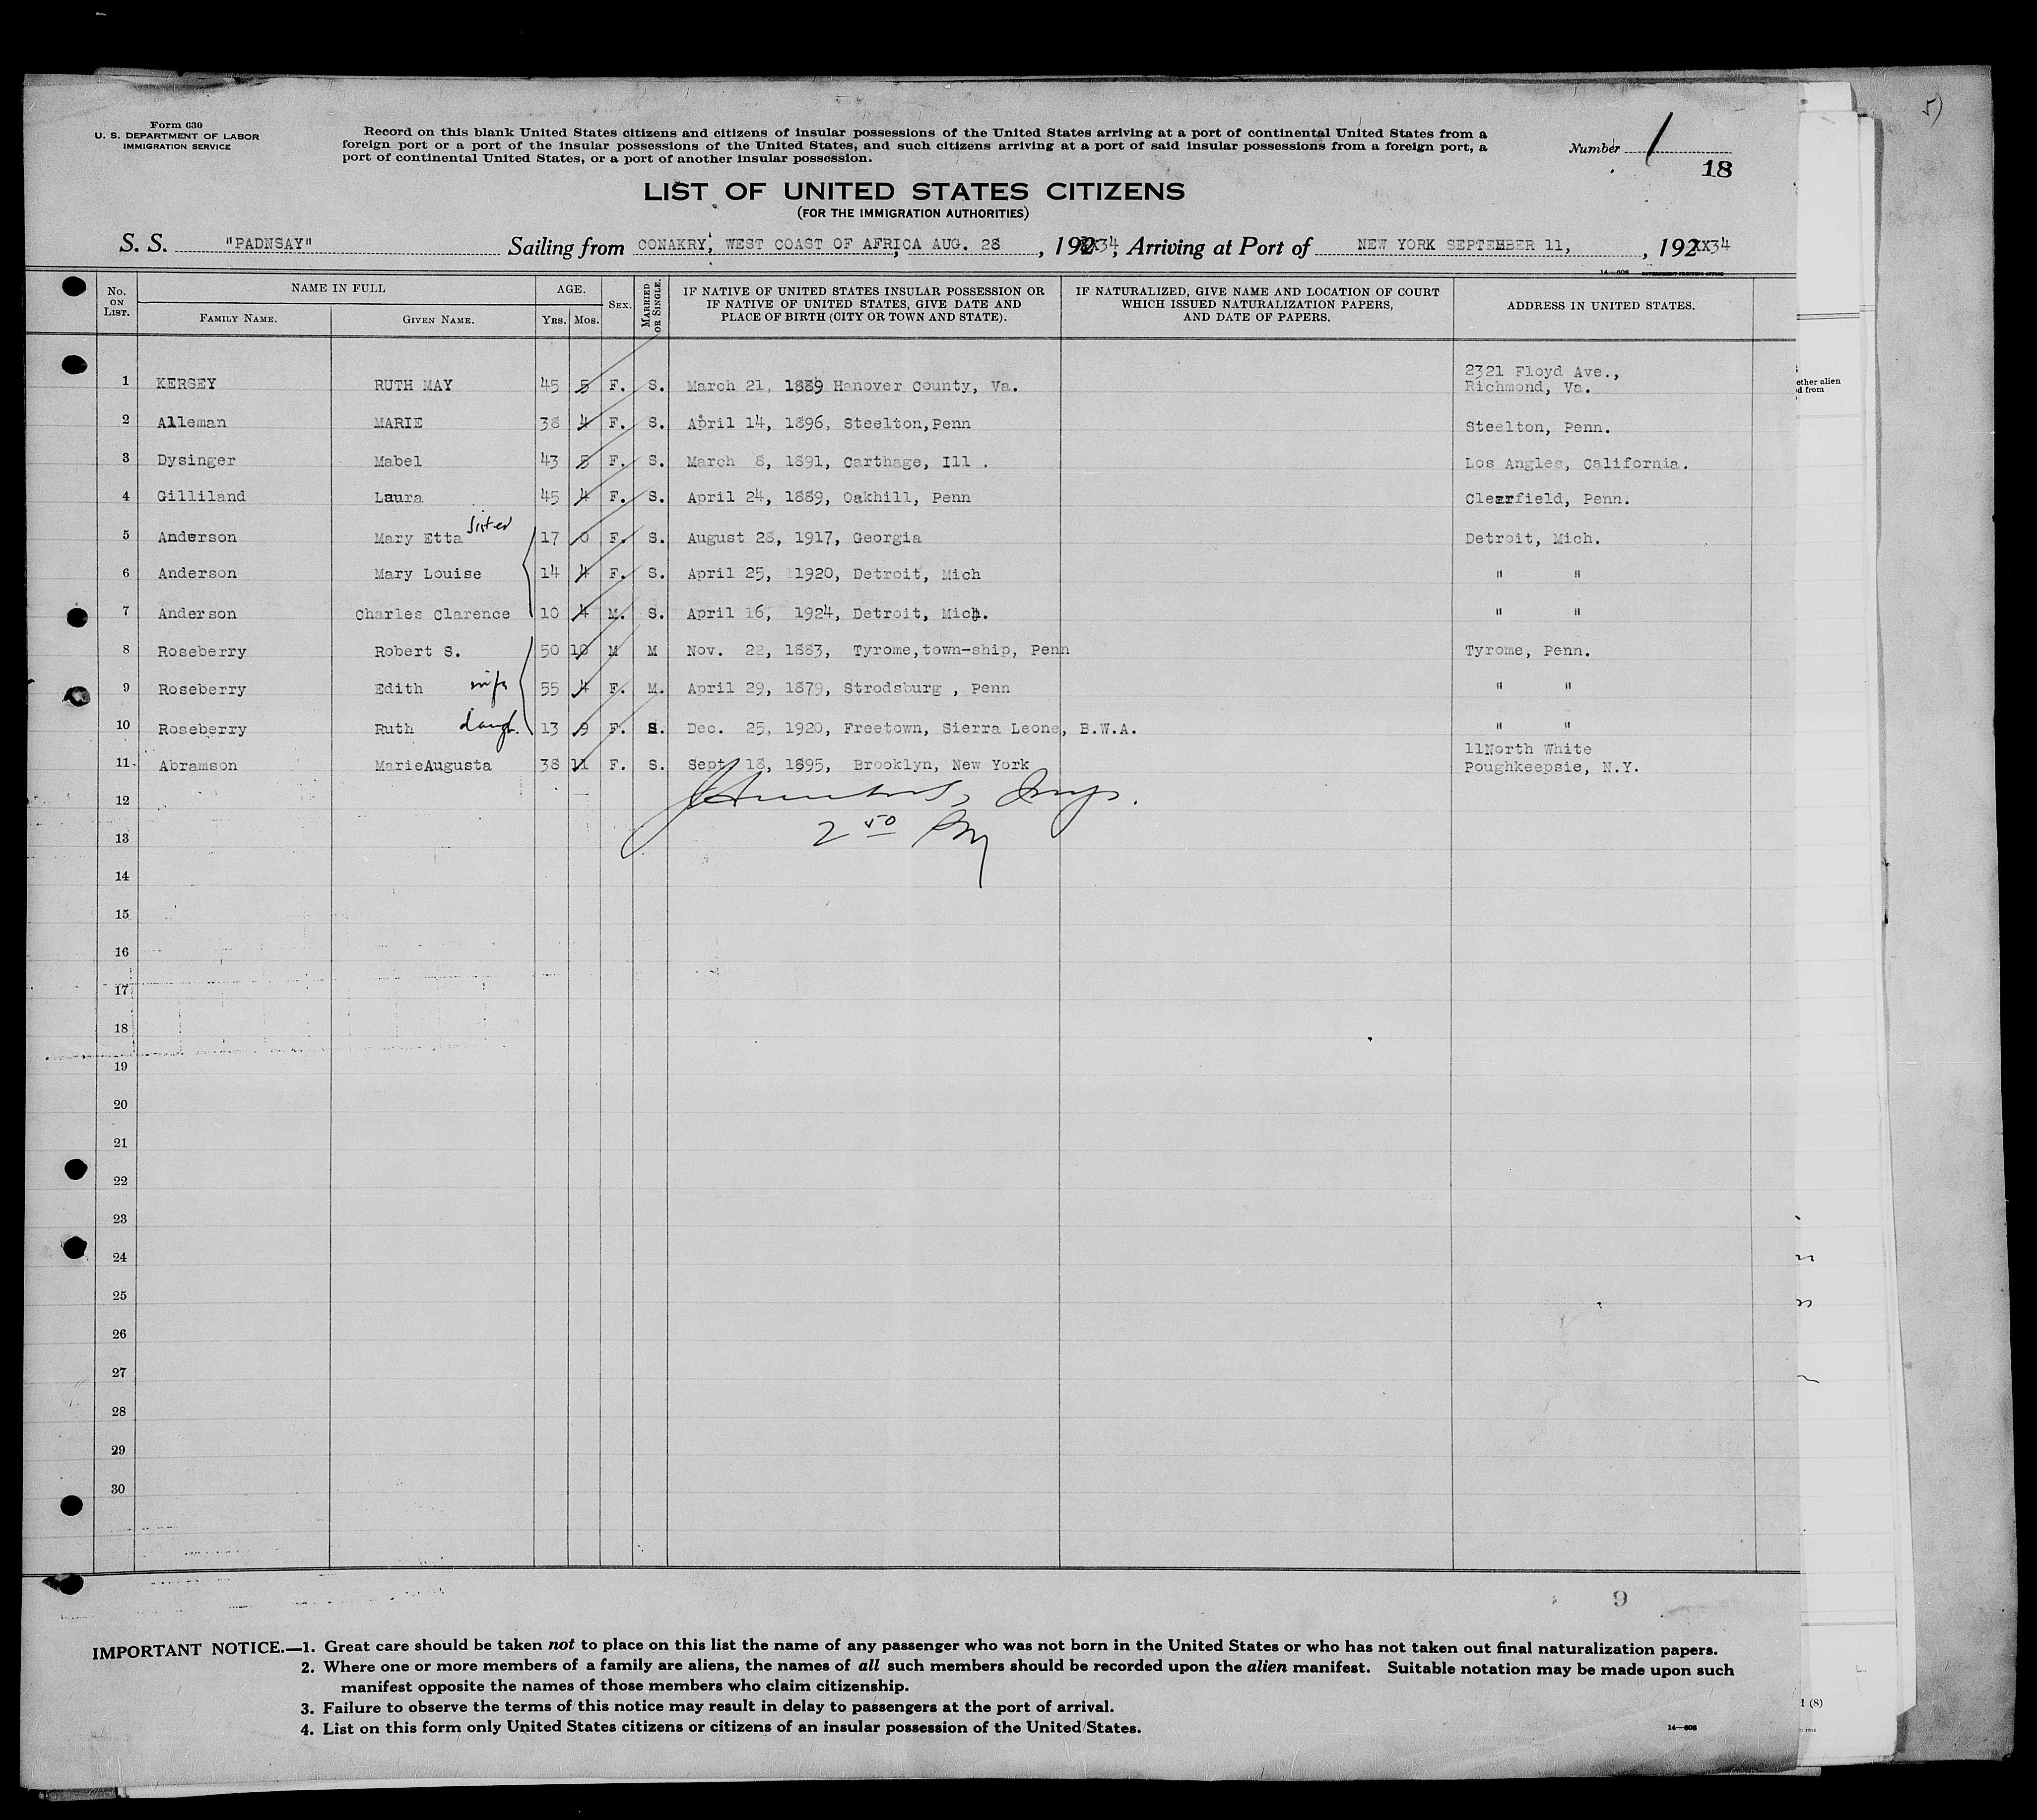 Form 630
U. S. DEPARTMENT OF LABOR
IMMIGRATION SERVICE
Record on this blank United States citizens and citizens of insular possessions of the United States arriving at a port of continental United States from a
foreign port or a port of the insular possessions of the United States, and such citizens arriving at a port of said insular possessions from a foreign port, a
port of continental United States, or a port of another insular possession.
Number 1
18
5)
LIST OF UNITED STATES CITIZENS
(FOR THE IMMIGRATION AUTHORITIES)
S. S. "PADNSAY" Sailing from CONAKRY, WEST COAST OF AFRICA AUG. 28, 192XX34, Arriving at Port of NEW YORK SEPTEMBER 11, , 192XX34
14—608 GOVERNMENT PRINTING OFFICE
No. ON LIST. NAME IN FULL AGE. SEX. MARRIED OR SINGLE. IF NATIVE OF UNITED STATES INSULAR POSSESSION OR IF NATIVE OF UNITED STATES, GIVE DATE AND PLACE OF BIRTH (CITY OR TOWN AND STATE). IF NATURALIZED, GIVE NAME AND LOCATION OF COURT WHICH ISSUED NATURALIZATION PAPERS, AND DATE OF PAPERS. ADDRESS IN UNITED STATES.
FAMILY NAME. GIVEN NAME. YRS. MOS.
1 KERSEY RUTH MAY 45 5 F. S. March 21, 1889 Hanover County, Va. 2321 Floyd Ave., Richmond, Va.
2 Alleman MARIE 38 4 F. S. April 14, 1896, Steelton,Penn Steelton, Penn.
3 Dysinger Mabel 43 5 F. S. March 8, 1891, Carthage, Ill . Los Angles, California.
4 Gilliland Laura 45 4 F. S. April 24, 1889, Oakhill, Penn Clearfield, Penn.
5 Anderson Mary Etta sister 17 0 F. S. August 28, 1917, Georgia Detroit, Mich.
6 Anderson Mary Louise 14 4 F. S. April 25, 1920, Detroit, Mich " "
7 Anderson Charles Clarence 10 4 M. S. April 16, 1924, Detroit, Mich. " "
8 Roseberry Robert S. 50 10 M M Nov. 22, 1883, Tyrome,town-ship, Penn Tyrome, Penn.
9 Roseberry Edith wife 55 4 F. M. April 29, 1879, Strodsburg , Penn " "
10 Roseberry Ruth daugh. 13 9 F. S. Dec. 25, 1920, Freetown, Sierra Leone, B.W.A. " "
11 Abramson MarieAugusta 38 11 F. S. Sept 18, 1895, Brooklyn, New York 11North White Poughkeepsie, N.Y.
12
2 50 PM
13
14
15
16
17
18
19
20
21
22
23
24
25
26
27
28
29
30
9
IMPORTANT NOTICE.—1. Great care should be taken not to place on this list the name of any passenger who was not born in the United States or who has not taken out final naturalization papers.
2. Where one or more members of a family are aliens, the names of all such members should be recorded upon the alien manifest. Suitable notation may be made upon such
manifest opposite the names of those members who claim citizenship.
3. Failure to observe the terms of this notice may result in delay to passengers at the port of arrival.
4. List on this form only United States citizens or citizens of an insular possession of the United States.
14—608
ether alien
d from
1 (8)